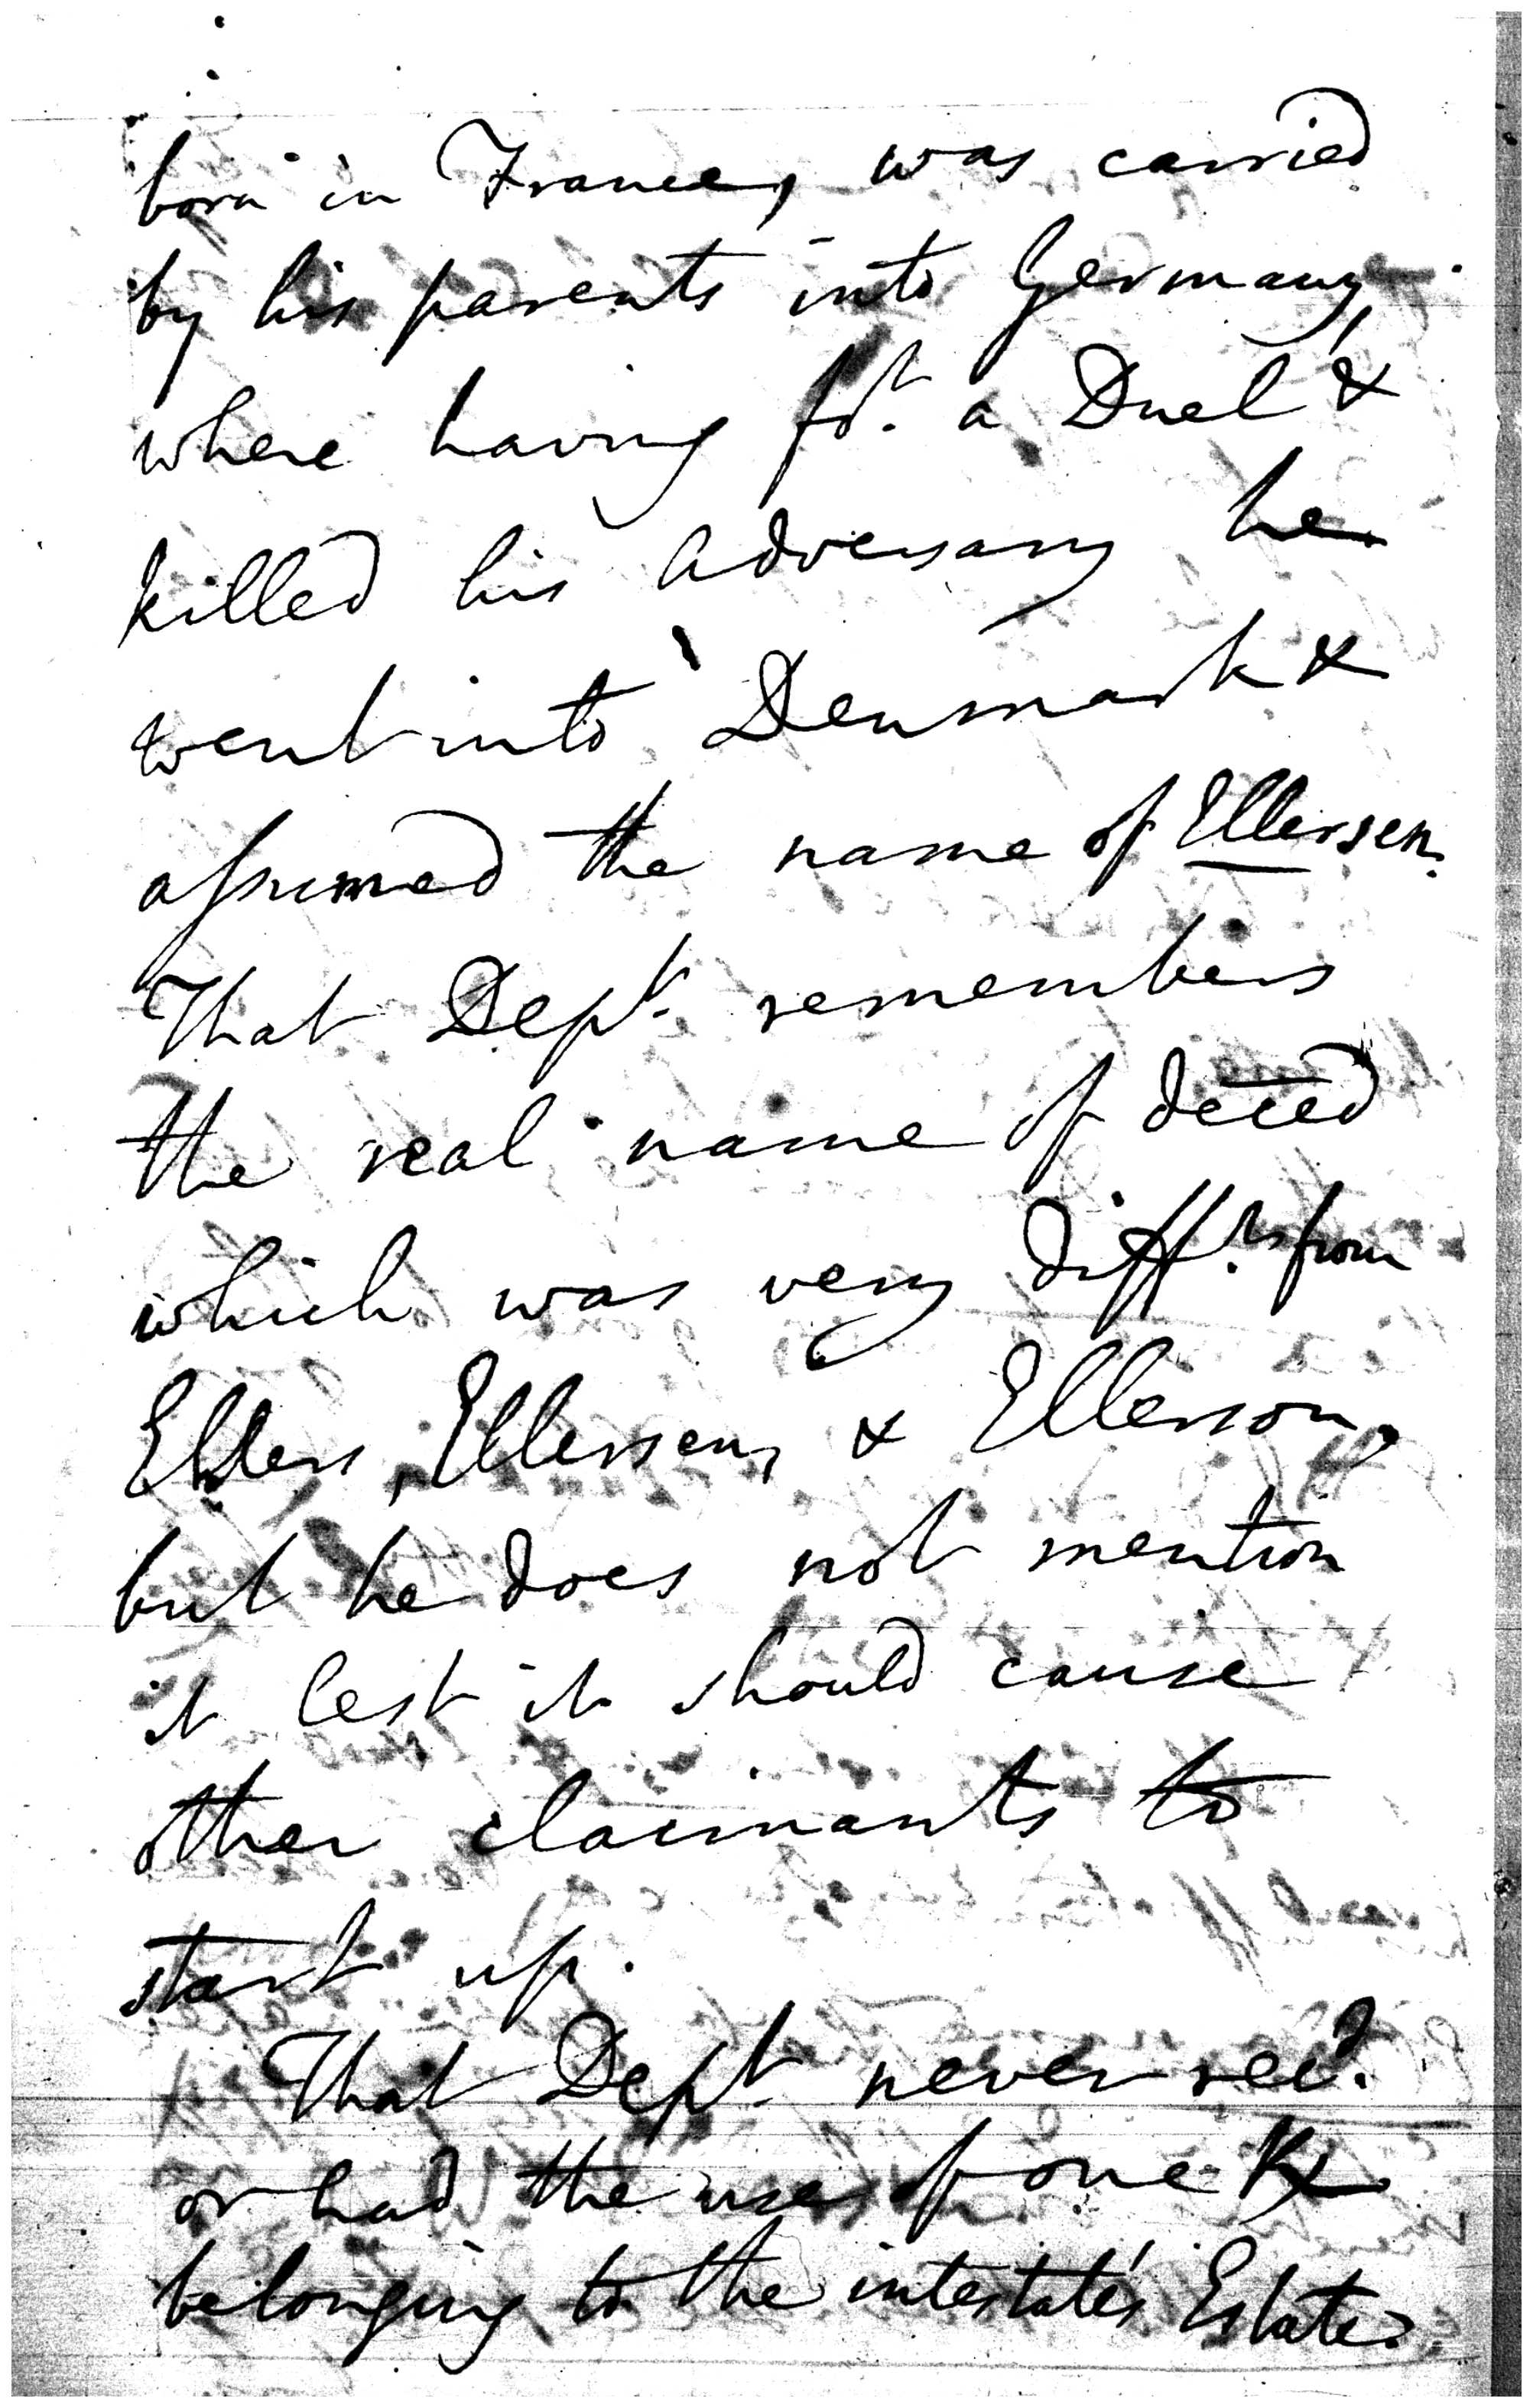 born in France, was carried
by his parents into Germany,
where having fot. a Duel &
killed his adversary he
went into Denmark &
assumed the name of Ellersen.
That Dept. remembers
the real name of deced
which was very difft. from
Ehlers, Ellersen, & Ellerson,
but he does not mention
it lest it should cause
other claimants to
start up.
That Dept. never recd.
or had the use of one
belonging to the intestate's Estate.